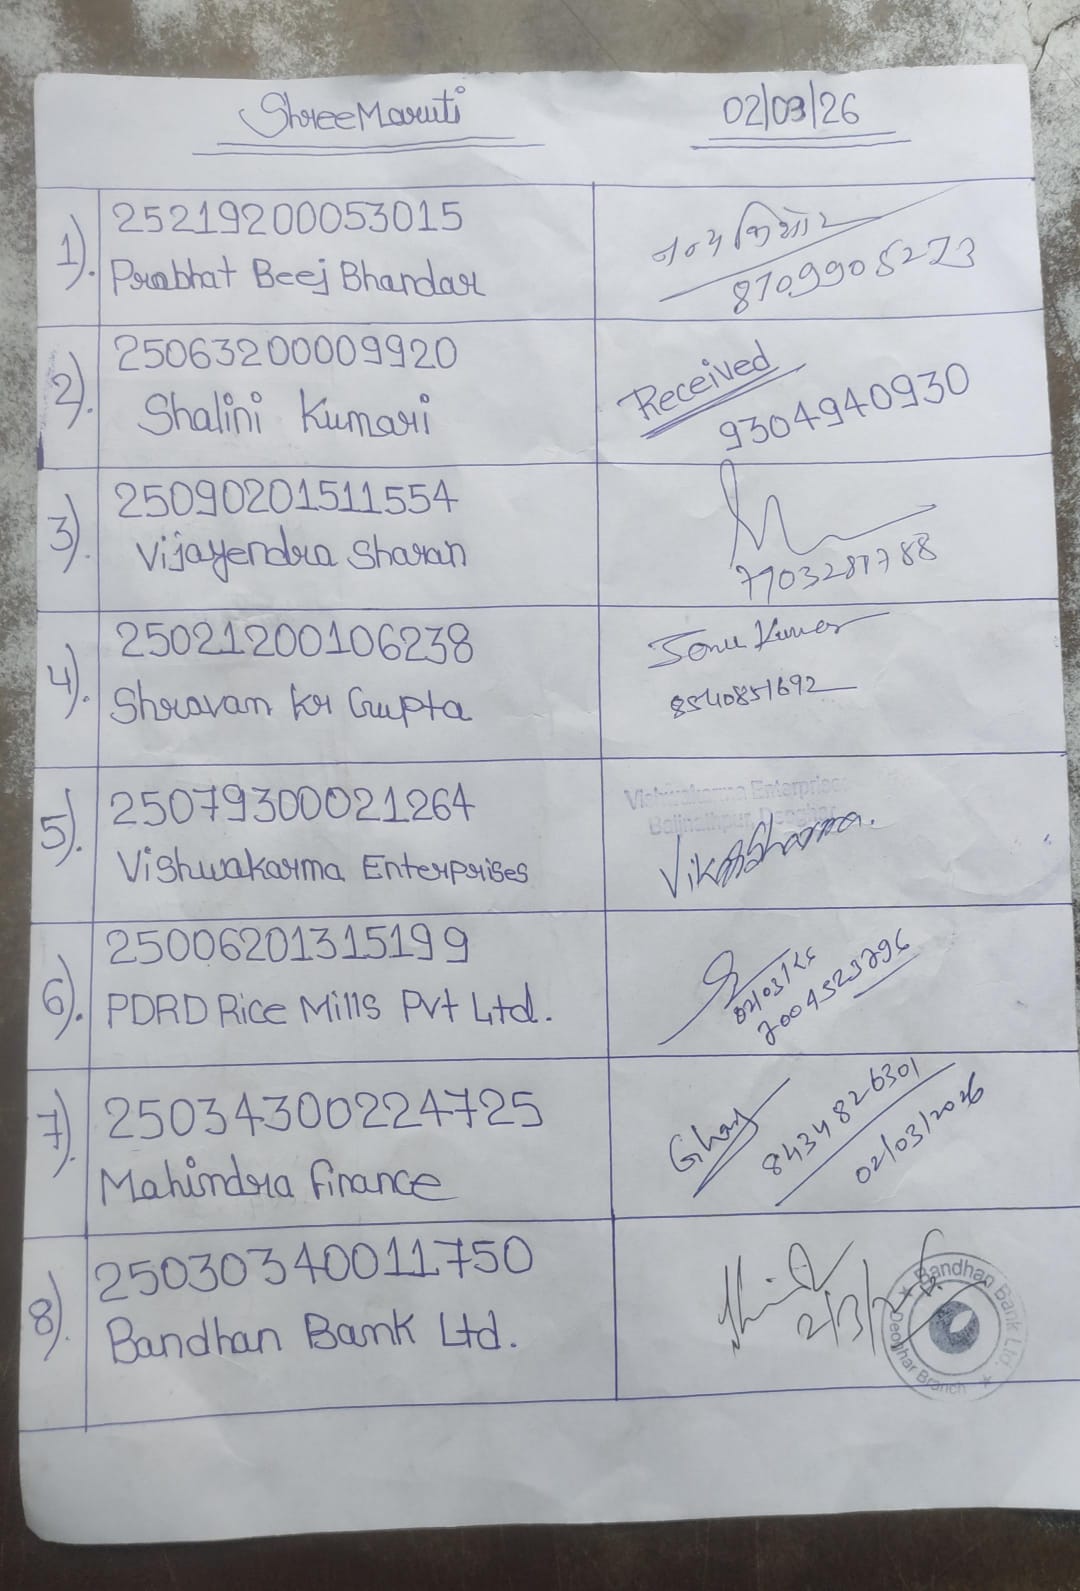 Shree Maruti
02/03/26
1).
25219200053015
Prabhat Beej Bhandar
8709905273
2).
25063200009920
Shalini Kumari
Received
9304940930
3).
25090201511554
Vijayendra Sharan
7703287788
4).
25021200106238
Shravan kr Gupta
Sonu Kumar
8540851692
5).
25079300021264
Vishwakarma Enterprises
Vishwakarma Enterprises
Baijnathpur, Deoghar
Vikash Sharma.
6).
25006201315199
PDRD Rice Mills Pvt Ltd.
02/03/26
7004523796
7).
25034300224725
Mahindra finance
8434826301
02/03/2026
8).
25030340011750
Bandhan Bank Ltd.
2/3/26
Bandhan Bank Ltd.
Deoghar Branch